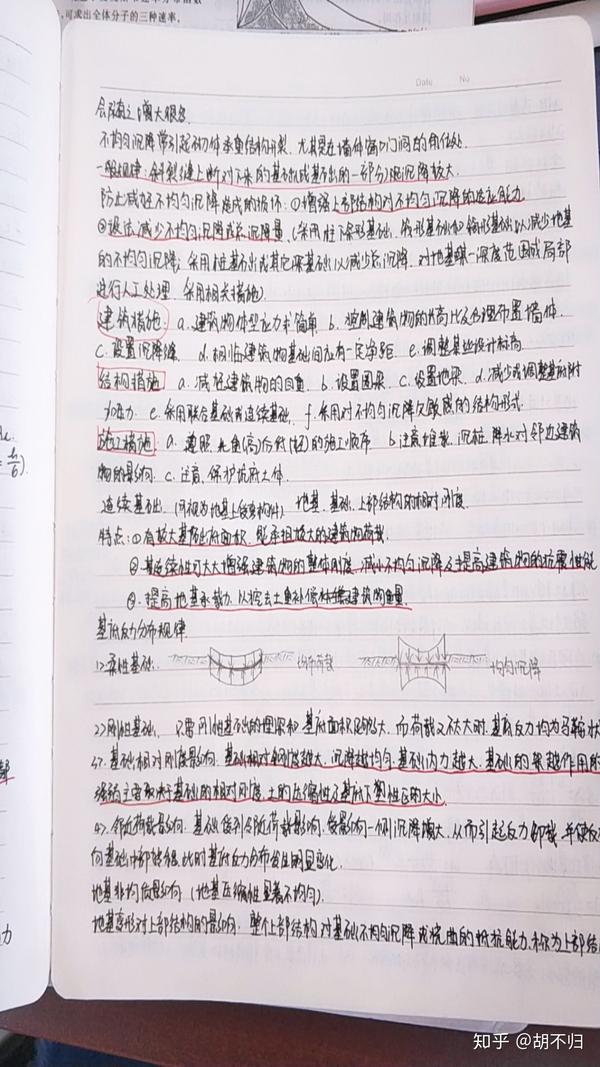 可求出全体分子的三种速率。
Date No
不均匀沉降常引起砌体承重结构开裂,尤其是在墙体窗口门洞的角位处.
一般规律:斜裂缝上断对下来的基础(或基础的一部分)沉降较大.
防止减轻不均匀沉降造成的损坏:①增强上部结构对不均匀沉降的适应能力
②设法减少不均匀沉降或总沉降量.(采用柱下条形基础、筏形基础和箱形基础以减少地基
的不均匀沉降;采用桩基础或其它深基础以减少总沉降.对地基某一深度范围或局部
进行人工处理.采用相关措施)
建筑措施: a.建筑物体型应力求简单 b.控制建筑物的长高比及合理布置墙体.
c.设置沉降缝 d.相临建筑物基础间应有一定净距. e.调整某些设计标高
结构措施 a.减轻建筑物的自重. b.设置圈梁. c.设置地梁. d.减少或调整基底附
加应力 e.采用联合基础或连续基础. f.采用对不均匀沉降欠敏感的结构形式.
施工措施: a.遵照先重(高)后轻(低)的施工顺序 b注意堆载,沉桩,降水对邻边建筑
物的影响. c.注意保护坑底土体.
连续基础.(可视为地基上的受弯构件) 地基.基础.上部结构的相对刚度.
特点:①有较大基底面积.能承担较大的建筑物荷载.
②其连续性可大大增强建筑物的整体刚度.减小不均匀沉降及提高建筑物的抗震性能
③.提高地基承载力.以挖去土重补偿建筑物重量.
基底反力分布规律.
1>柔性基础. 均布荷载 均匀沉降
2>刚性基础. 只要刚性基础的埋深和基底面积足够大.而荷载又不太大时.基底反力均为马鞍状
3>.基础相对刚度影响.基础相对刚度越大.沉降越均匀.基础内力越大.基础的架越作用的
强弱主要取决于基础的相对刚度.土的压缩性及基底下塑性区的大小.
4>.邻近荷载影响.基础受到邻近荷载影响.受影响一侧沉降增大.从而引起反力卸载.并使反力
向基础中部转移.此时基底反力分布发生明显变化.
地基非均质影响(地基压缩性显著不均匀).
地基变形对上部结构的影响.整个上部结构对基础不均匀沉降或挠曲的抵抗能力.称为上部结
知乎 @胡不归